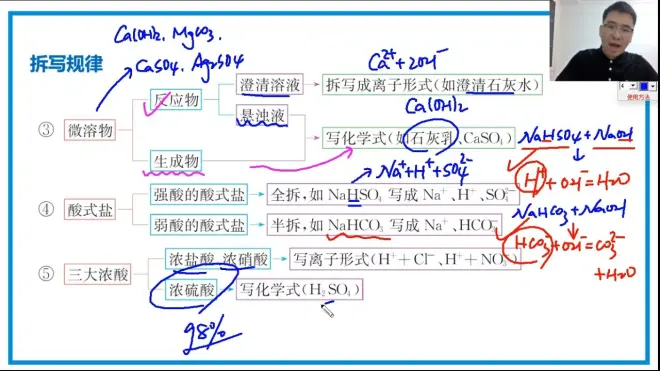 Ca(OH)₂、MgCO₃、
CaSO₄、Ag₂SO₄
拆写规律
Ca²⁺+2OH⁻
反应物
澄清溶液
拆写成离子形式(如澄清石灰水)
悬浊液
Ca(OH)₂
③
微溶物
写化学式(如石灰乳、CaSO₄)
生成物
NaHSO₄+NaOH
Na⁺+H⁺+SO₄²⁻
H⁺+OH⁻=H₂O
④
酸式盐
强酸的酸式盐
全拆,如 NaHSO₄ 写成 Na⁺、H⁺、SO₄²⁻
弱酸的酸式盐
半拆,如 NaHCO₃ 写成 Na⁺、HCO₃⁻
NaHCO₃+NaOH
HCO₃⁻+OH⁻=CO₃²⁻
+H₂O
⑤
三大浓酸
浓盐酸、浓硝酸
写离子形式(H⁺+Cl⁻、H⁺+NO₃⁻)
浓硫酸
写化学式(H₂SO₄)
98%
使用方法